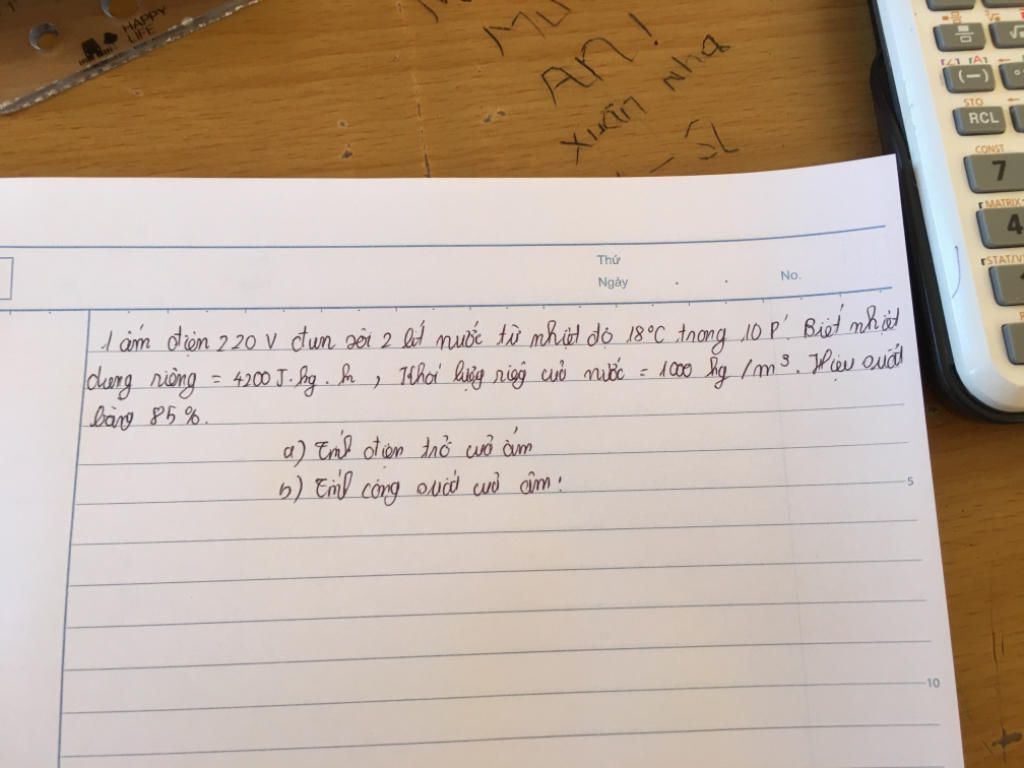 HAPPY
LIFE
AN!
xuân nha
RCL
STO
CONST
7
MATRIX
4
STAT/V
Thứ
Ngày . . No.
1 ấm điện 220 V đun sôi 2 lít nước từ nhiệt độ 18°C trong 10 P'. Biết nhiệt
dung riêng = 4200 J.kg.k, Khối lượng riêng cuả nước = 1000 kg/m³. Hiệu suất
bằng 85%.
a) Tính điện trở cuả ấm
b) Tính công suất cuả ấm.
5
10